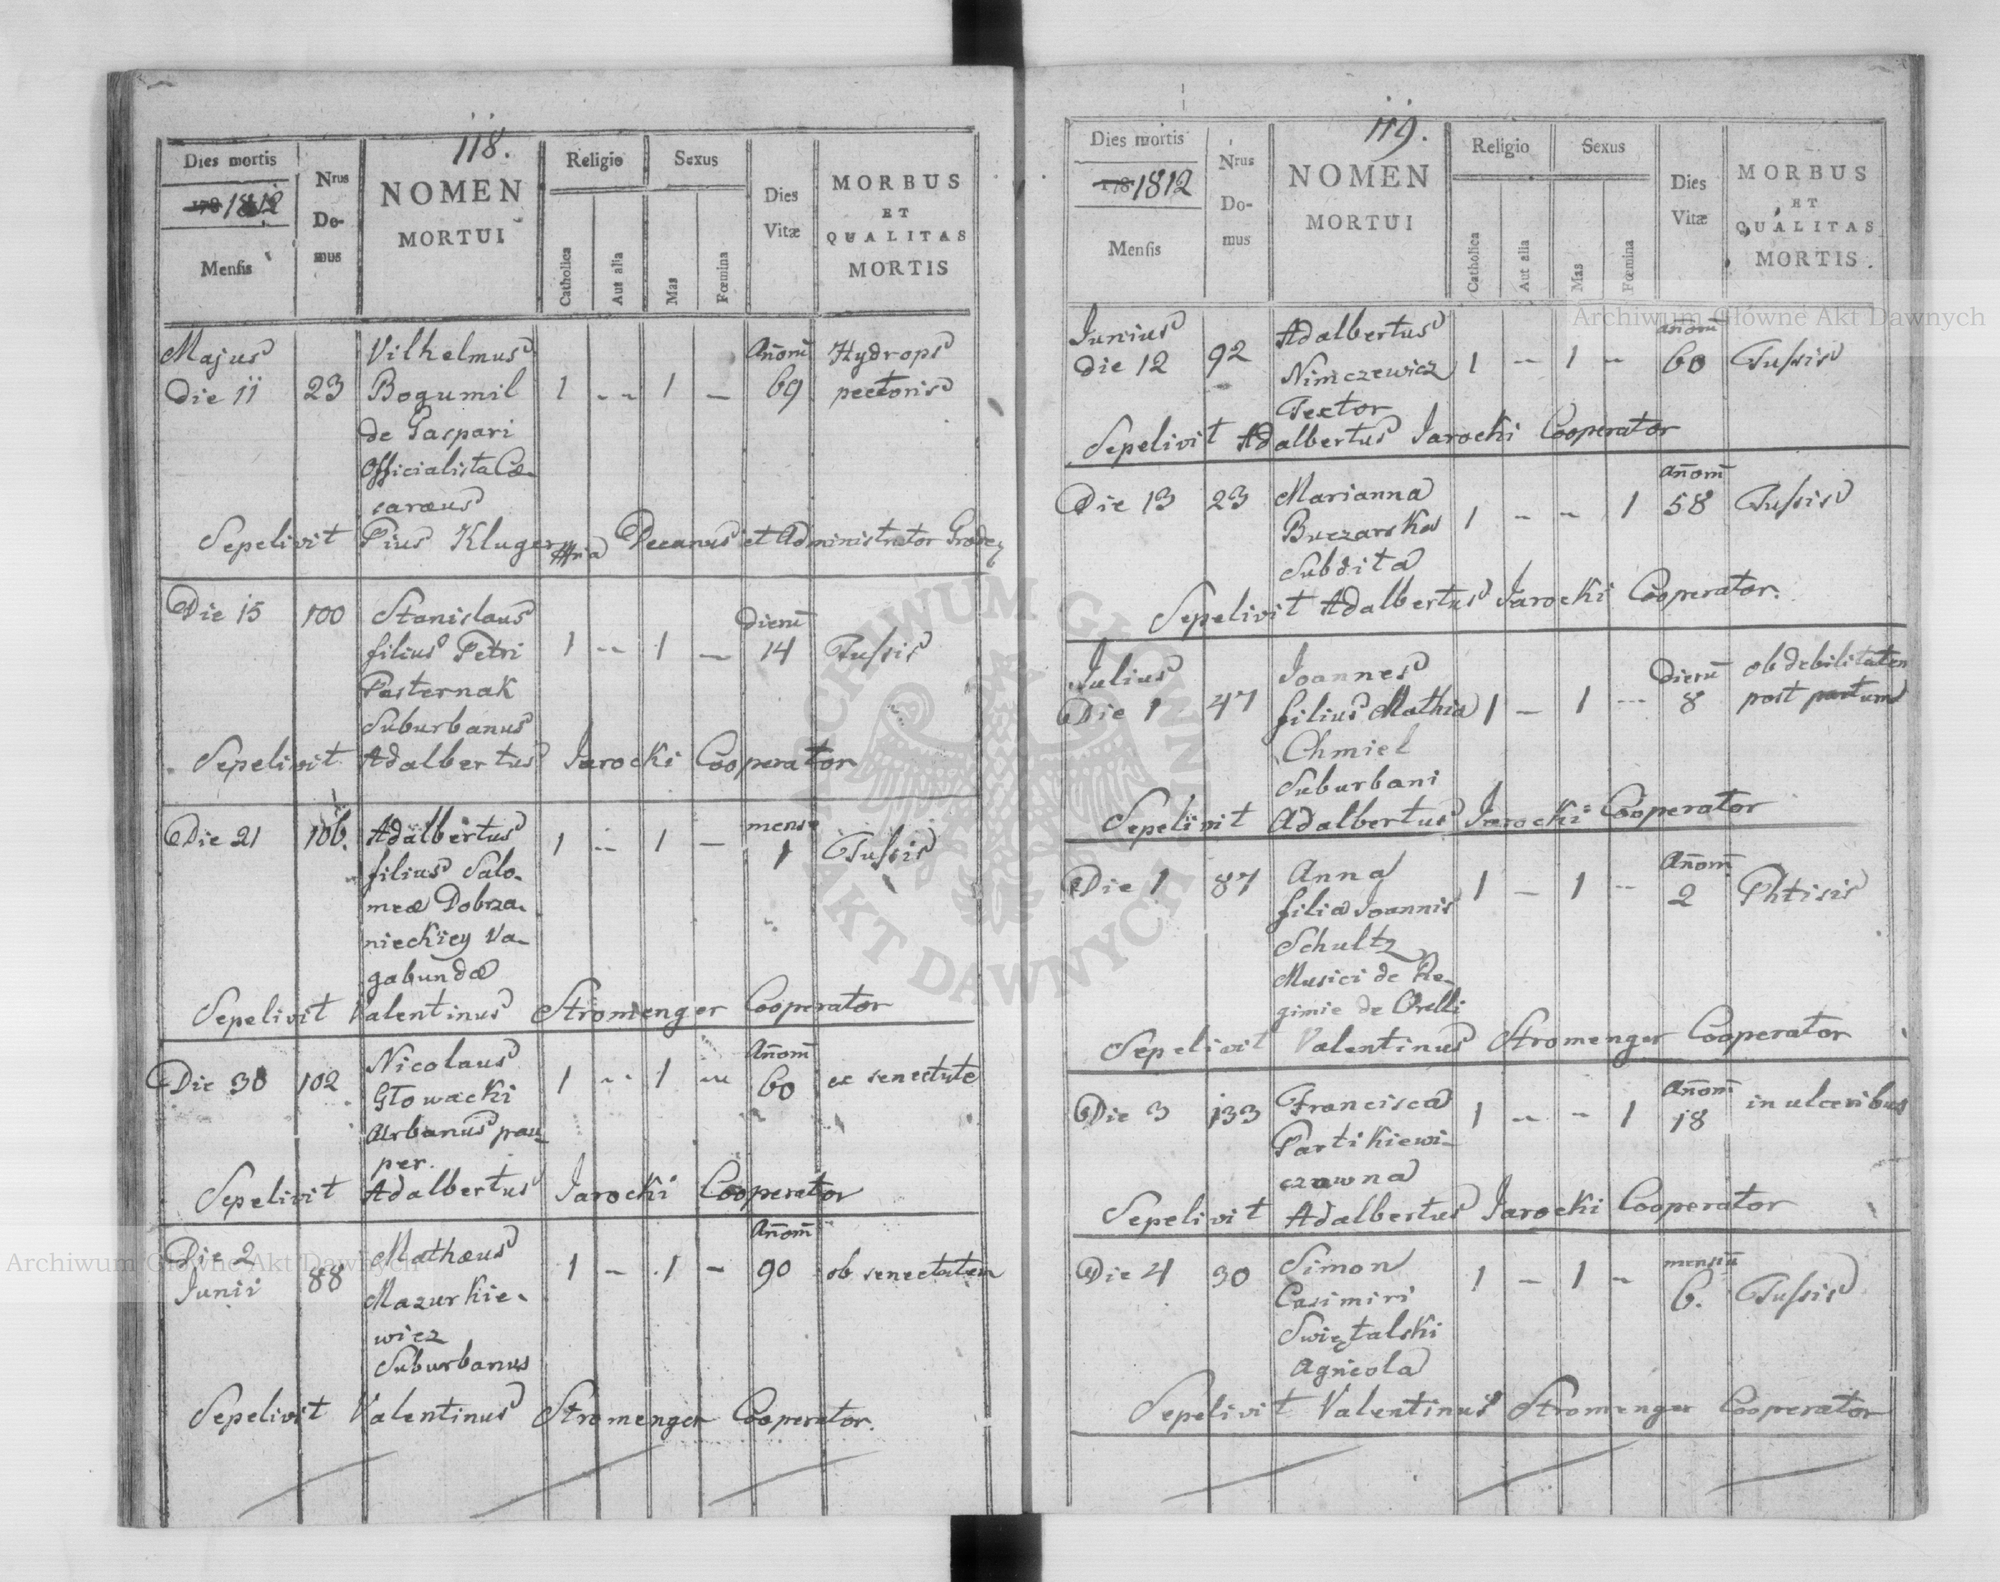 118.
Dies mortis
178 1812
Mensis
Nrus
Do-
mus
NOMEN
MORTUI
Religio
Catholica
Aut alia
Sexus
Mas
Fœmina
Dies
Vitæ
MORBUS
ET
QUALITAS
MORTIS
Majus
Die 11 23 Vilhelmus
Bogumil
de Gaspari
Officialista Cæ-
sareus 1 -- 1 - Añorū 69 Hydrops
pectoris
Sepelivit Pius Kluger Decanus et Administrator
Die 15 100 Stanislaus
filius Petri
Pasternak
Suburbanus 1 -- 1 - dierū 14 Tussis
Sepelivit Adalbertus Jarocki Cooperator
Die 21 106. Adalbertus
filius Salo-
meæ Dobrza-
nieckiey Va-
gabundæ 1 -- 1 - mense 1 Tussis
Sepelivit Valentinus Stromenger Cooperator
Die 30 102 Nicolaus
Głowacki
Urbanus pau-
per. 1 -- 1 -- Añorū 60 ex senectute
Sepelivit Adalbertus Jarocki Cooperator
Die 2
Junii 88 Mathæus
Mazurkie-
wicz
Suburbanus 1 - 1 - Añorū 90 ob senectutem
Sepelivit Valentinus Stromenger Cooperator.
119.
Dies mortis
178 1812
Mensis
Nrus
Do-
mus
NOMEN
MORTUI
Religio
Catholica
Aut alia
Sexus
Mas
Fœmina
Dies
Vitæ
MORBUS
ET
QUALITAS
MORTIS
Junius
die 12 92 Adalbertus
Nimczewicz
Textor 1 -- 1 - añorū 60 Tussis
Sepelivit Adalbertus Jarocki Cooperator
Die 13 23 Marianna
Buczarska
Subdita 1 - - 1 añorū 58 Tussis
Sepelivit Adalbertus Jarocki Cooperator.
Julius
Die 1 47 Joannes
filius Mathiæ
Chmiel
Suburbani 1 - 1 -- Dierū 8 ob debilitatem
post partum
Sepelivit Adalbertus Jarocki Cooperator
Die 1 87 Anna
filia Joannis
Schultz
Musici de Re-
gimie de Orelli 1 - 1 -- Añorū 2 Phtisis
Sepelivit Valentinus Stromenger Cooperator
Die 3 133 Francisca
Partikiewi-
czowna 1 -- - 1 Añorū 18 in ulceribus
Sepelivit Adalbertus Jarocki Cooperator
Die 4 30 Simon
Casimiri
Swiętalski
Agricola 1 - 1 - mensiū 6. Tussis
Sepelivit Valentinus Stromenger Cooperator
Archiwum Główne Akt Dawnych
Archiwum Główne Akt Dawnych
ARCHIWUM GŁÓWNE
AKT DAWNYCH